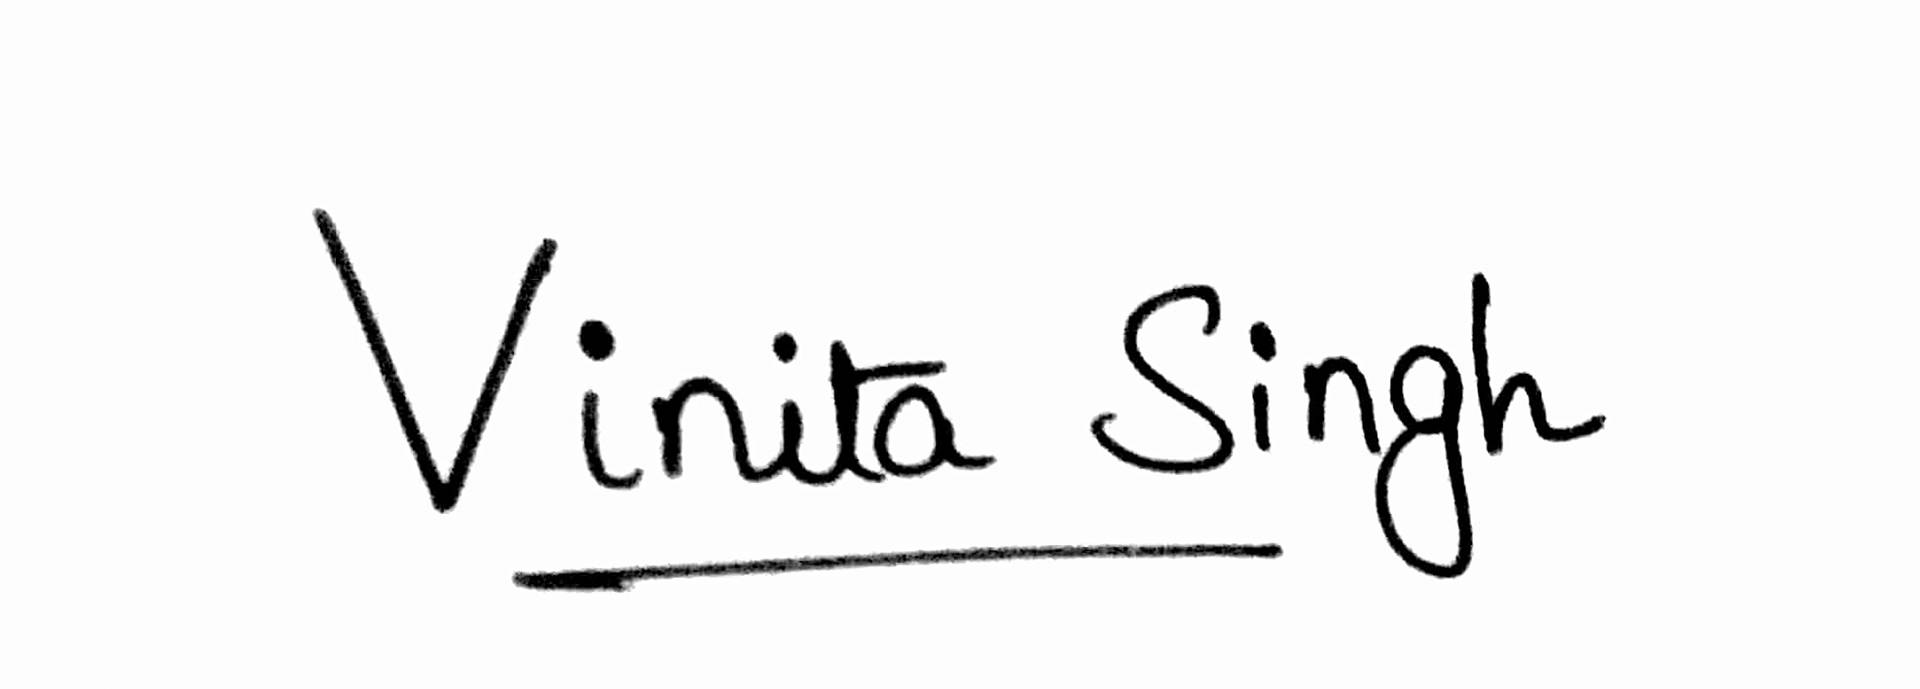 Vinita Singh